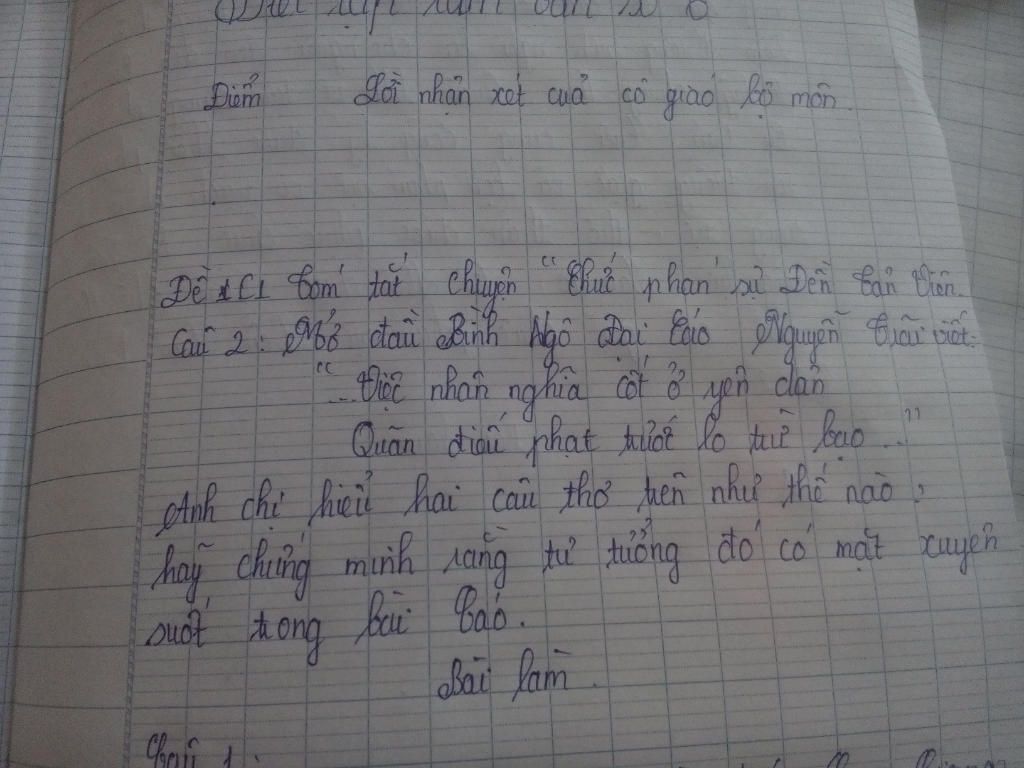 Bài tập làm văn số 6
Điểm Lời nhận xét cuả cô giáo bộ môn.
Đề 1 C1 Tóm tắt chuyện "Chức phán sự Đền Tản Viên.
Câu 2: Mở đầu Bình Ngô Đại Cáo Nguyễn Trãi viết:
"...Việc nhân nghĩa cốt ở yên dân
Quân điếu phạt trước lo trừ bạo..."
Anh chị hiểu hai câu thơ trên như thế nào,
hãy chứng minh rằng tư tưởng đó có mặt xuyên
suốt trong bài Cáo.
Bài làm.
Câu 1: